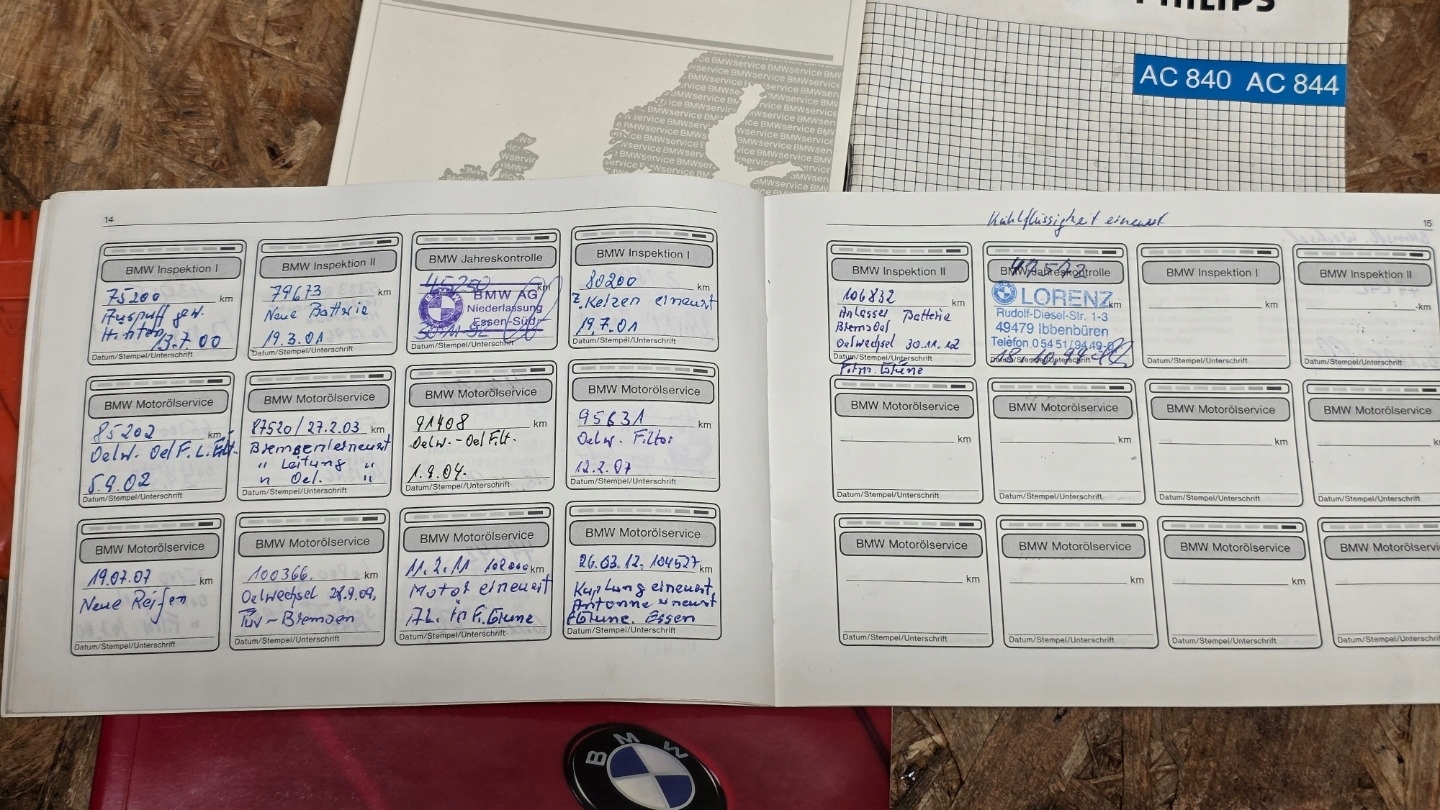 PHILIPS
AC 840 AC 844
14
BMW Inspektion I
75200 km
Auspuff
Hinten 13.7.00
Datum/Stempel/Unterschrift
BMW Inspektion II
79673 km
Neue Batterie
19.3.01
Datum/Stempel/Unterschrift
BMW Jahreskontrolle
BMW AG
Niederlassung
Essen-Süd
Datum/Stempel/Unterschrift
BMW Inspektion I
80200 km
Z. Kerzen erneuert
19.7.01
Datum/Stempel/Unterschrift
BMW Motorölservice
85202 km
Oelw. Oel F. L.
5.9.02
Datum/Stempel/Unterschrift
BMW Motorölservice
87520/27.2.03 km
Bremsen erneuert
" Leitung "
" Oel. "
Datum/Stempel/Unterschrift
BMW Motorölservice
91408 km
Oelw.-Oel Filt.
1.9.04.
Datum/Stempel/Unterschrift
BMW Motorölservice
95631 km
Oelw. Filter
12.2.07
Datum/Stempel/Unterschrift
BMW Motorölservice
19.07.07 km
Neue Reifen
Datum/Stempel/Unterschrift
BMW Motorölservice
100366. km
Oelwechsel 28.9.09,
Tüv-Bremsen
Datum/Stempel/Unterschrift
BMW Motorölservice
11.2.11 102000 km
Motor erneuert
Datum/Stempel/Unterschrift
BMW Motorölservice
26.03.12. 104527 km
Kuplung erneuert,
Antenne erneuert
Essen
Datum/Stempel/Unterschrift
Kühlflüssigkeit erneuert
15
BMW Inspektion II
106832 km
Anlasser Batterie
Bremsoel
Oelwechsel 30.11.12
Datum/Stempel/Unterschrift
BMW Jahreskontrolle
km
LORENZ
Rudolf-Diesel-Str. 1-3
49479 Ibbenbüren
Telefon 05451/9449-
Datum/Stempel/Unterschrift
BMW Inspektion I
km
Datum/Stempel/Unterschrift
BMW Inspektion II
km
Datum/Stempel/Unterschrift
BMW Motorölservice
km
Datum/Stempel/Unterschrift
BMW Motorölservice
km
Datum/Stempel/Unterschrift
BMW Motorölservice
km
Datum/Stempel/Unterschrift
BMW Motorölservice
Datum/Stempel/Unterschrift
BMW Motorölservice
km
Datum/Stempel/Unterschrift
BMW Motorölservice
km
Datum/Stempel/Unterschrift
BMW Motorölservice
km
Datum/Stempel/Unterschrift
BMW
Datum/Stempel/Unterschrift
BMW